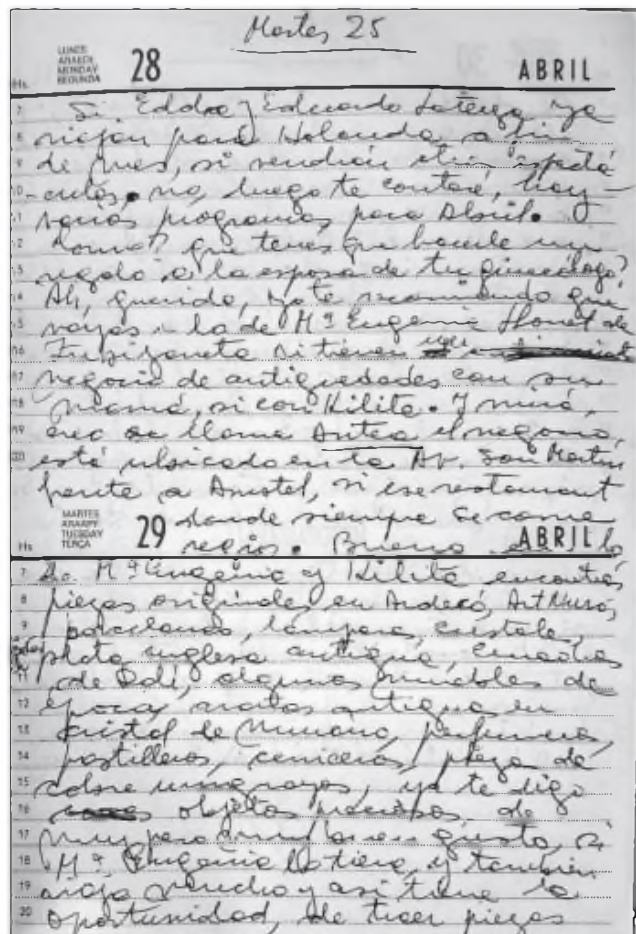 Martes 25
LUNES
ARAKÕI
MONDAY
SEGUNDA
28
ABRIL
Hs.
7 Si Eddra y Eduardo Laterza ya
8 viajan para Holanda a fin
9 de mes, si vendrán otros espectá
10 -culos, no, luego te contaré, hay
11 varios programas para Abril.
12 que tenés que hacerle un
13 regalo a la esposa de tu ginecólogo?
14 Ah, querida, yo te recomiendo que
15 vayas a lo de Mª Eugenia Llonet de
16 si tienen un
17 negocio de antiguedades con su
18 mamá, si con Kilita. Y mirá,
19 se llama Antea el negocio,
20 está ubicado en la Av. San Martín
frente a Amstel, si ese restaurant
MARTES
ARAAPY
TUESDAY
TERÇA
29
ABRIL
Hs.
donde siempre se come
regio. Bueno en lo
7 de Mª Eugenia y Kilita encontrás
8 piezas originales en Ardecó, Art Nuvó,
9 porcelanas, lámparas, cristales,
plata inglesa antigua,
11 de Dalí, algunos muebles de
12 época, antiguos en
13 cristal de Murano, perfumeros,
14 pastilleros, ceniceros, pieza de
15 cobre uruguayos, ya te digo
16 objetos preciosos, de
17 muy pero muy buen gusto, si
18 Mª Eugenia lo tiene, y también
19 viaja mucho y así tiene la
20 oportunidad, de traer piezas